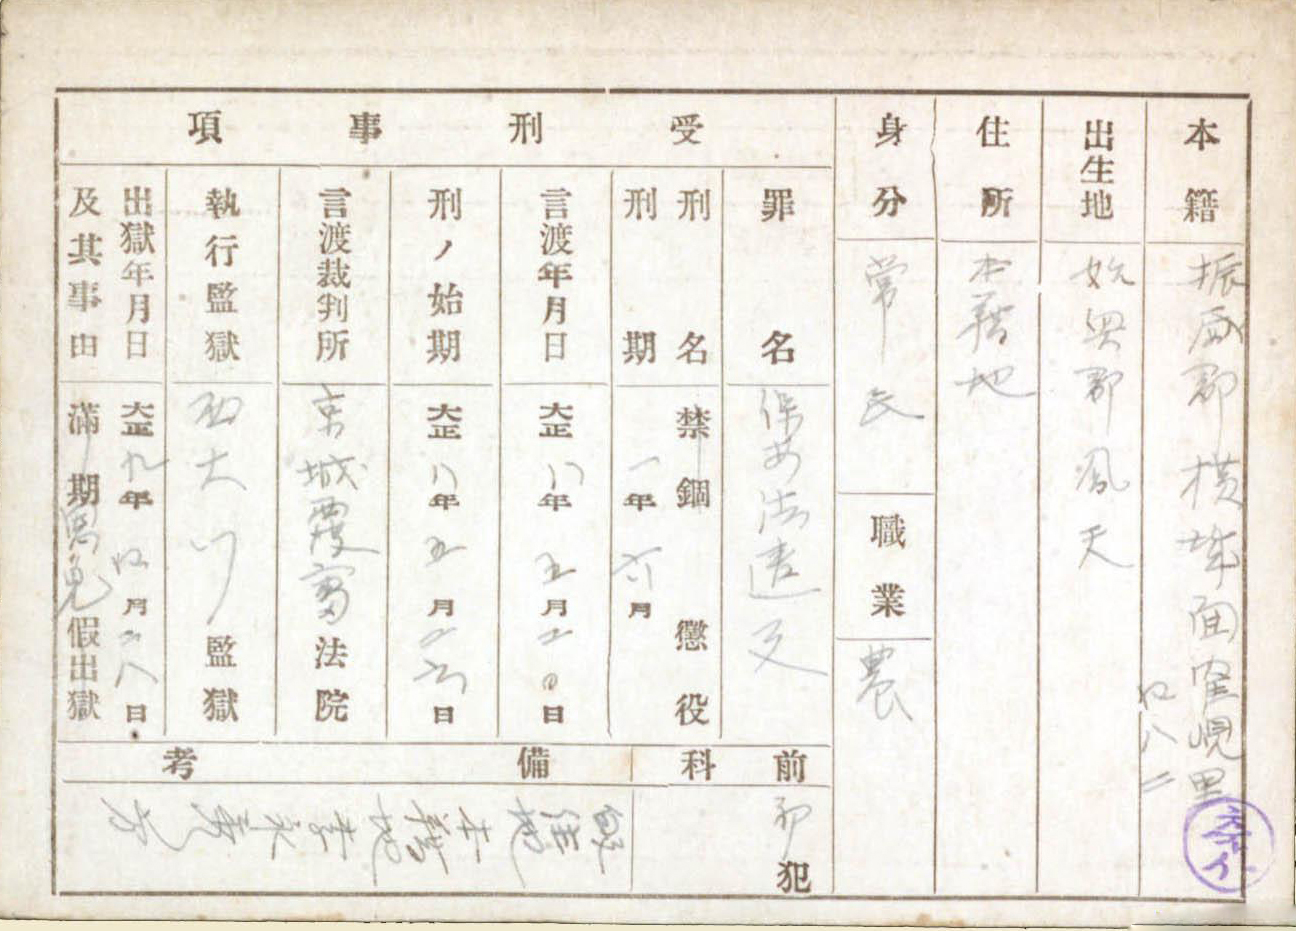 本籍
振威郡
面
里
四八二
出生地
始興郡鳳天
住所
本籍地
身分
常民
職業
農
受刑事項
罪名
保安法違反
刑名
禁錮
懲役
刑期
一年六月
言渡年月日
大正八年五月二〇日
刑ノ始期
大正八年五月二六日
言渡裁判所
京城覆審法院
執行監獄
西大門監獄
出獄年月日
及其事由
大正九年四月二八日
滿期
恩免
假出獄
前科
初犯
備考
住地
本籍地
方